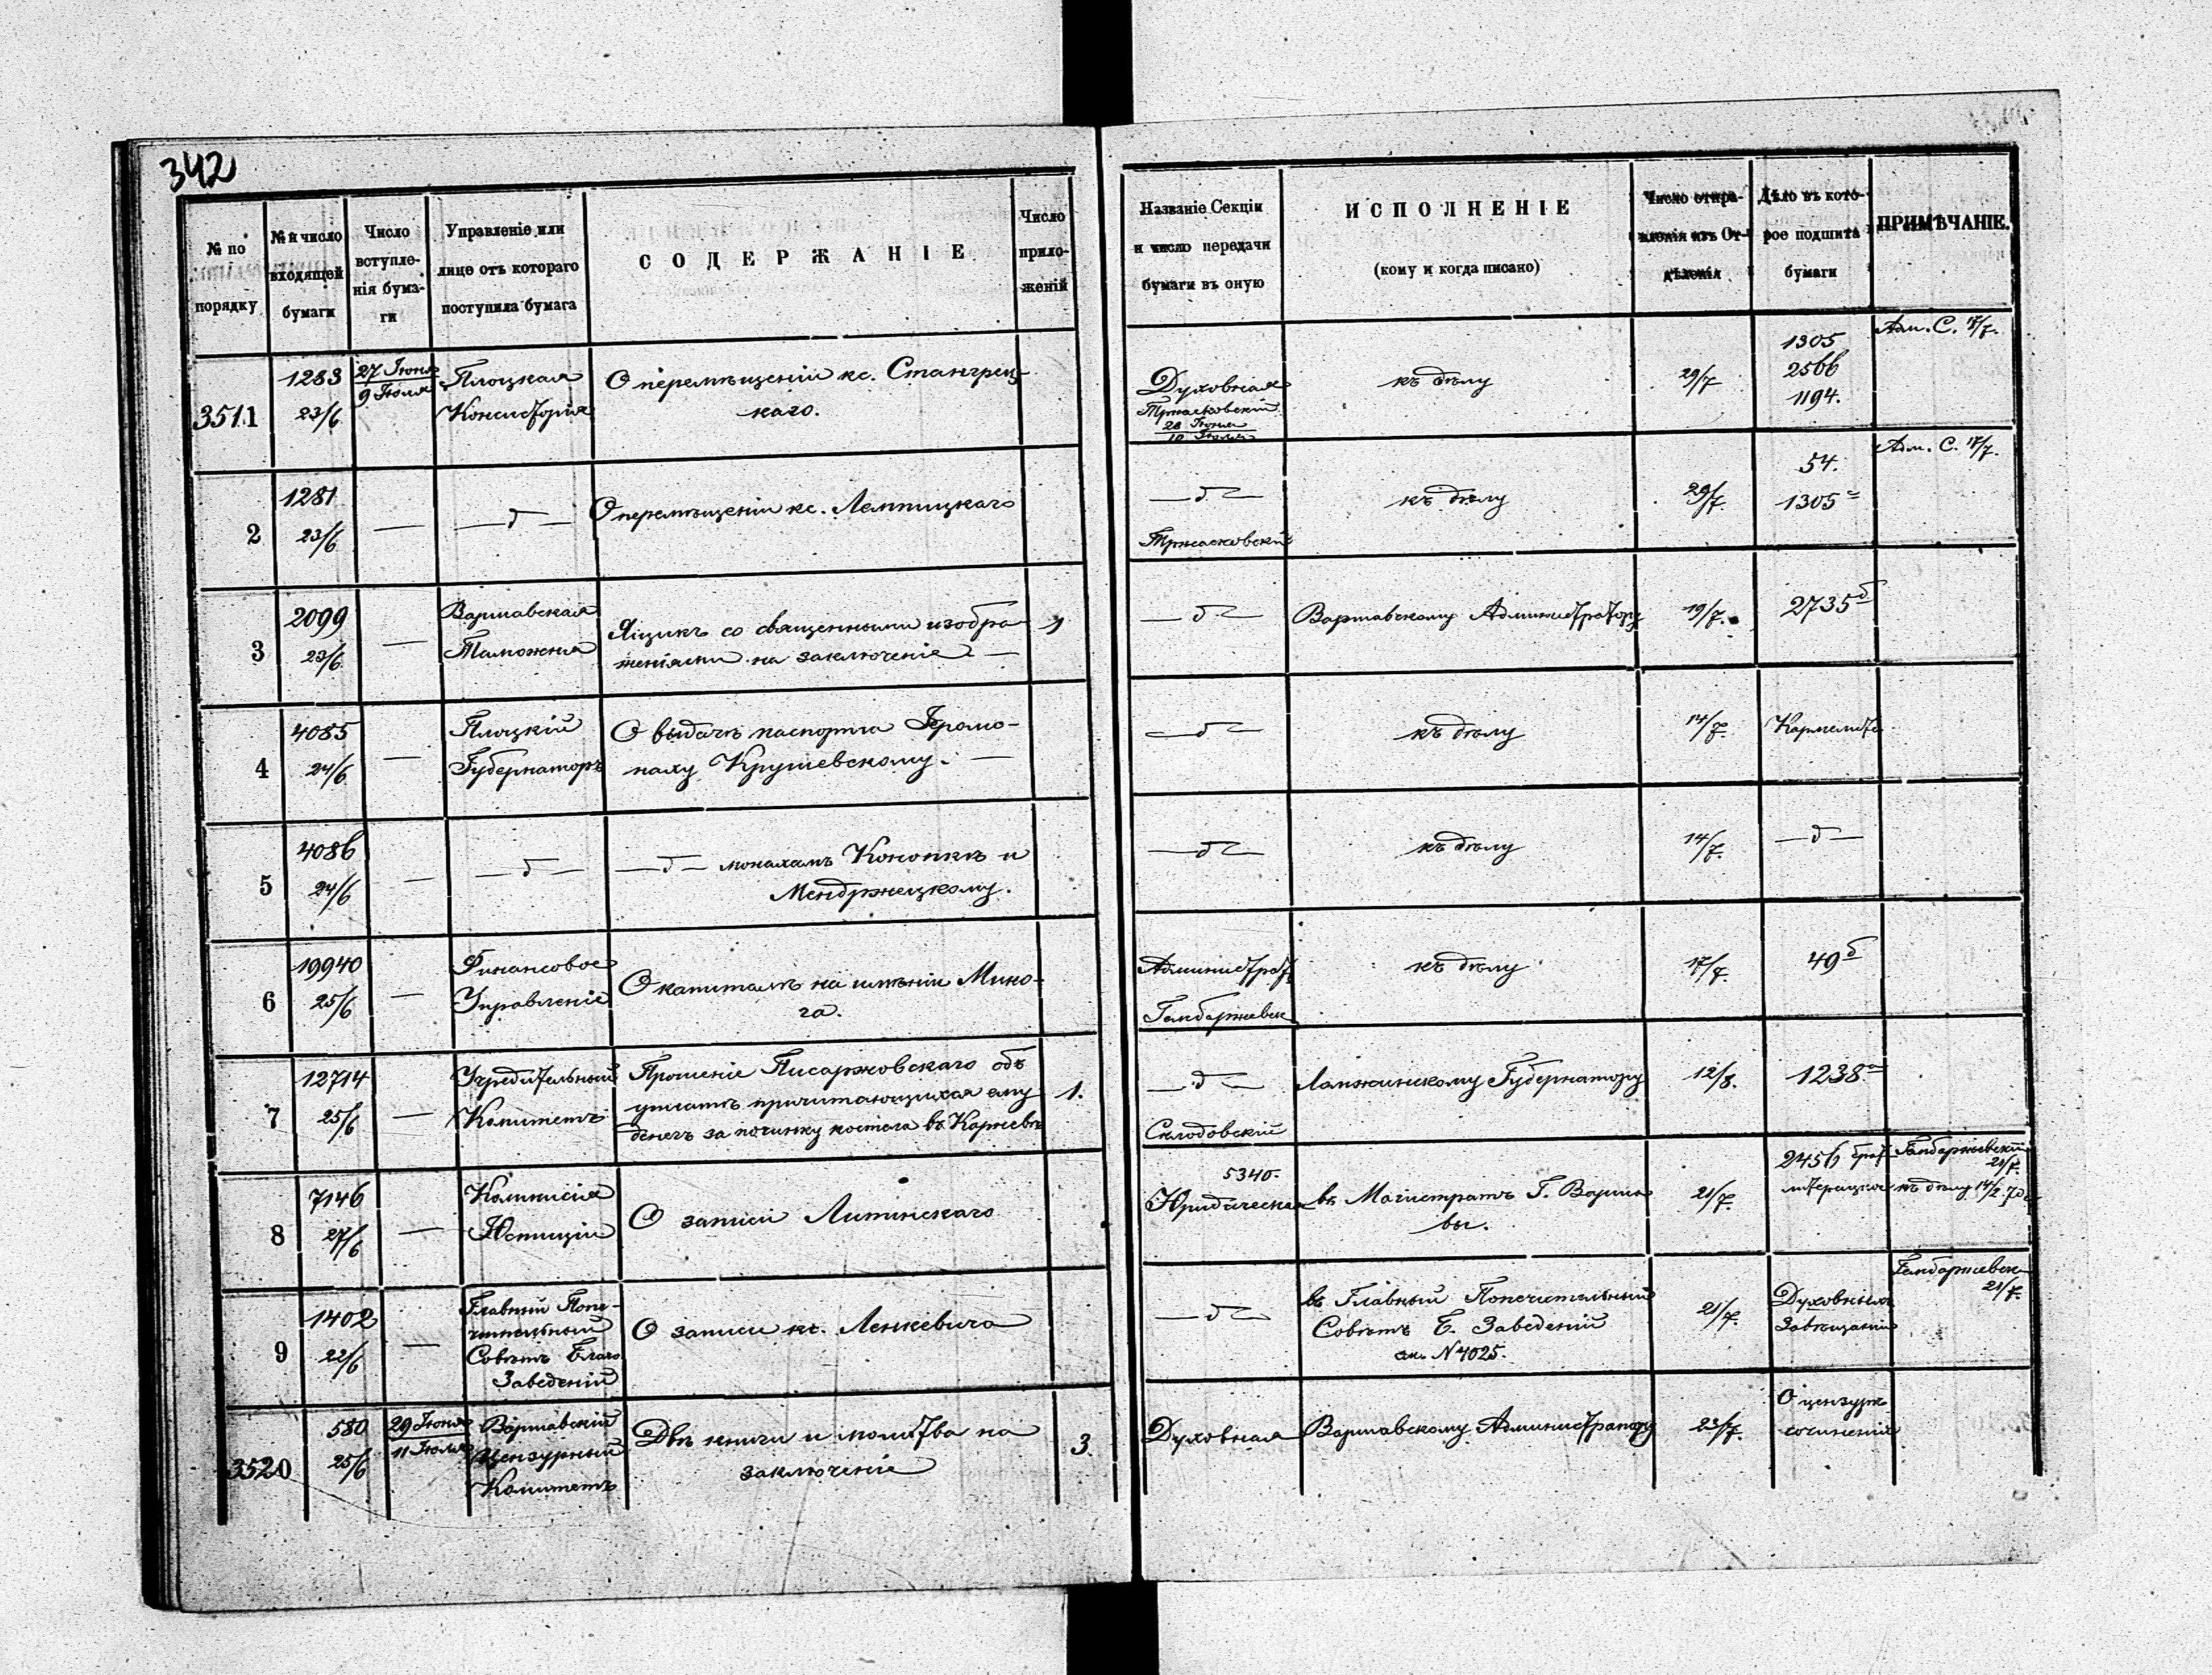 342
№ по порядку
№ и число входящей бумаги
Число вступленія бумаги
Управленіе или лице отъ котораго поступила бумага
СОДЕРЖАНІЕ
Число приложеній
Названіе Секціи и число передачи бумаги въ оную
ИСПОЛНЕНІЕ
(кому и когда писано)
Число отправленія изъ Отдѣленія
Дѣло въ которое подшита бумаги
ПРИМѢЧАНІЕ.
3511
1283
23/6
27 Іюня
9 Іюля
Плоцкая
Консисторія
О перемѣщеніи кс. Стангрец-
каго.
Духовная
28 Іюня
10 Іюля
къ дѣлу
29/7
1305
2566
1194.
Адм. С. 17/7.
2
1281
23/6
— д —
О перемѣщеніи кс. Лемпицкаго
— д —
къ дѣлу
29/7.
54.
1305 с
Адм. С. 17/7.
3
2099
23/6
—
Варшавская
Таможня
Ящикъ со священными изобра-
женіями на заключеніе —
1
— д —
Варшавскому Администратору
19/7.
2735 д.
4
4085
24/6
—
Плоцкій
Губернаторъ
О выдачѣ паспорта Іеромо-
наху Крушевскому. —
— д —
къ дѣлу
14/7.
5
4086
24/6
—
— д —
— д — монахамъ Конопкѣ и
Мендржецкому.
— д —
къ дѣлу
14/7.
— д —
6
19940
25/6
—
Финансовое
Управленіе
О капиталѣ на имѣніи Мино-
га.
Администрат.
Гембаржевск
къ дѣлу
17/7.
49 б
7
12714
25/6
—
Учредительный
Комитетъ
Прошеніе Писаржовскаго объ
уплатѣ причитающихся ему
денегъ за починку костела въ Карневѣ
1.
— д —
Склодовскій
Ломжинскому Губернатору
12/8.
1238. а
8
7146
27/6
—
Коммисія
Юстиціи
О записи Липинскаго
5340.
Юридическая
въ Магистратъ Г. Варша-
вы.
21/7.
2456
Гембаржевскій
21/7.
къ дѣлу 14/2.
9
1402
22/6
—
Главный Попе-
чительный
Совѣтъ Благо
Заведеній
О записи кс. Ленкевича
— д —
въ Главный Попечительный
Совѣтъ Б. Заведеній
за N 4025.
21/7.
Духовныхъ
Завѣщаній
Гембаржевск
21/7.
3520
580
25/6
29 Іюня
11 Іюля
Варшавскій
Цензурный
Комитетъ
Двѣ книги и молитва на
заключеніе
3.
Духовная
Варшавскому Администратору
23/7.
О цензурѣ
сочиненій